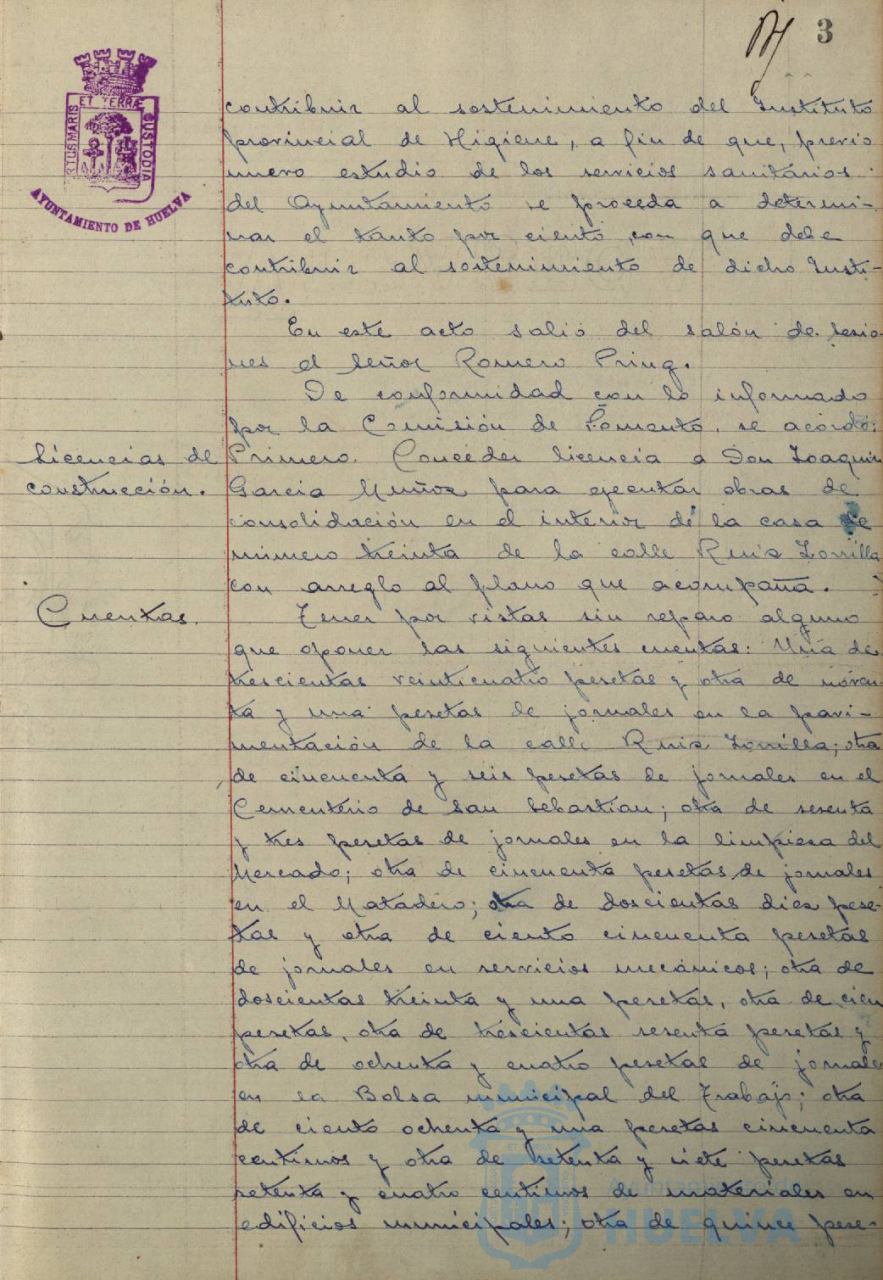 3
ET TERRÆ
PORTUS MARIS
CUSTODIA
AYUNTAMIENTO DE HUELVA
contribuir al sostenimiento del Instituto
provincial de Higiene, a fin de que, previo
nuevo estudio de los servicios sanitários
del Ayuntamiento se proceda a determi-
nar el tanto por ciento con que debe
contribuir al sostenimiento de dicho Insti-
tuto.
En este acto salió del salón de sesio-
nes el señor Romero Pring.
De conformidad con lo informado
por la Comisión de Fomento, se acordó:
Licencias de
construcción.
Primero. Conceder licencia a Don Joaquin
Garcia Muñoz para ejecutar obras de
consolidación en el interior de la casa
número treinta de la calle Ruiz Zorrilla
con arreglo al plano que acompaña.
Cuentas.
Tener por vistas sin reparo alguno
que oponer las siguientes cuentas: Una de
trescientas veinticuatro pesetas y otra de noven-
ta y una pesetas de jornales en la pavi-
mentación de la calle Ruiz Zorrilla; otra
de cincuenta y seis pesetas de jornales en el
Cementerio de San Sebastian; otra de sesenta
y tres pesetas de jornales en la limpieza del
Mercado; otra de cincuenta pesetas de jornales
en el Matadero; otra de doscientas diez pese-
tas y otra de ciento cincuenta pesetas
de jornales en servicios mecánicos; otra de
doscientas treinta y una pesetas, otra de cien
pesetas, otra de trescientas sesenta pesetas y
otra de ochenta y cuatro pesetas de jornales
en la Bolsa municipal del Trabajo; otra
de ciento ochenta y una pesetas cincuenta
centimos y otra de setenta y siete pesetas
setenta y cuatro centimos de materiales en
edificios municipales; otra de quince pese-
HUELVA